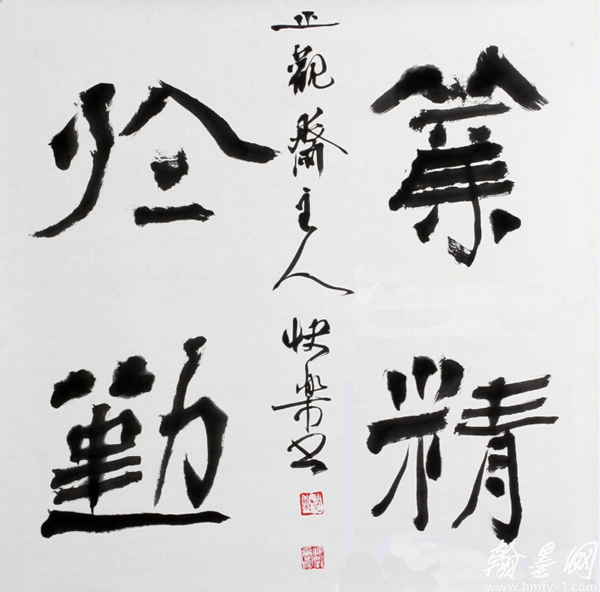 業精
於勤
正觀齋主人 快樂書
翰墨网
www.hmtv-1.com